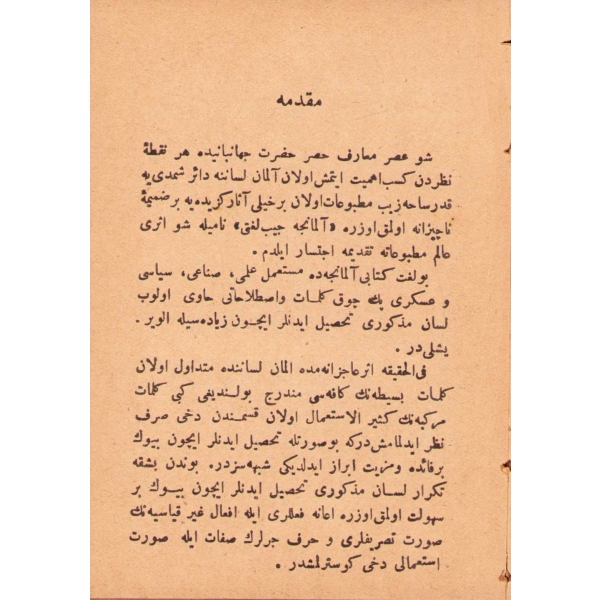 مقدمه
شو عصر معارف حصر حضرت جهانبانیده هر نقطۀ
نظردن کسب اهمیت ایتمش اولان آلمان لساننه دائر شمدی یه
قدر ساحه زیب مطبوعات اولان برخیلی آثار کزیده یه بر ضمیمۀ
ناچیزانه اولمق اوزره «آلمانجه جیب لغتی» نامیله شو اثری
عالم مطبوعاته تقدیمه اجتسار ایلدم .
بو لغت کتابی آلمانجه ده مستعمل علمی، صناعی، سیاسی
و عسکری پك چوق کلمات و اصطلاحاتی حاوی اولوب
لسان مذکوری تحصیل ایدنلر ایچون زیاده سیله الویر -
یشلی در .
فی الحقیقه اثر عاجزانه مده المان لساننده متداول اولان
کلمات بسیطه نك کافه سی مندرج بولندیغی کبی کلمات
مرکبه نك کثیر الاستعمال اولان قسمندن دخی صرف
نظر ایدلمامش درکه بو صورتله تحصیل ایدنلر ایچون بیوك
بر فائده و مزیت ابراز ایدلدیکی شبهه سزدر. بوندن بشقه
تکرار لسان مذکوری تحصیل ایدنلر ایچون بیوك بر
سهولت اولمق اوزره اعانه فعللری ایله افعال غیر قیاسیه نك
صورت تصریفلری و حرف جرلرك صفات ایله صورت
استعمالی دخی کوسترلمشدر .